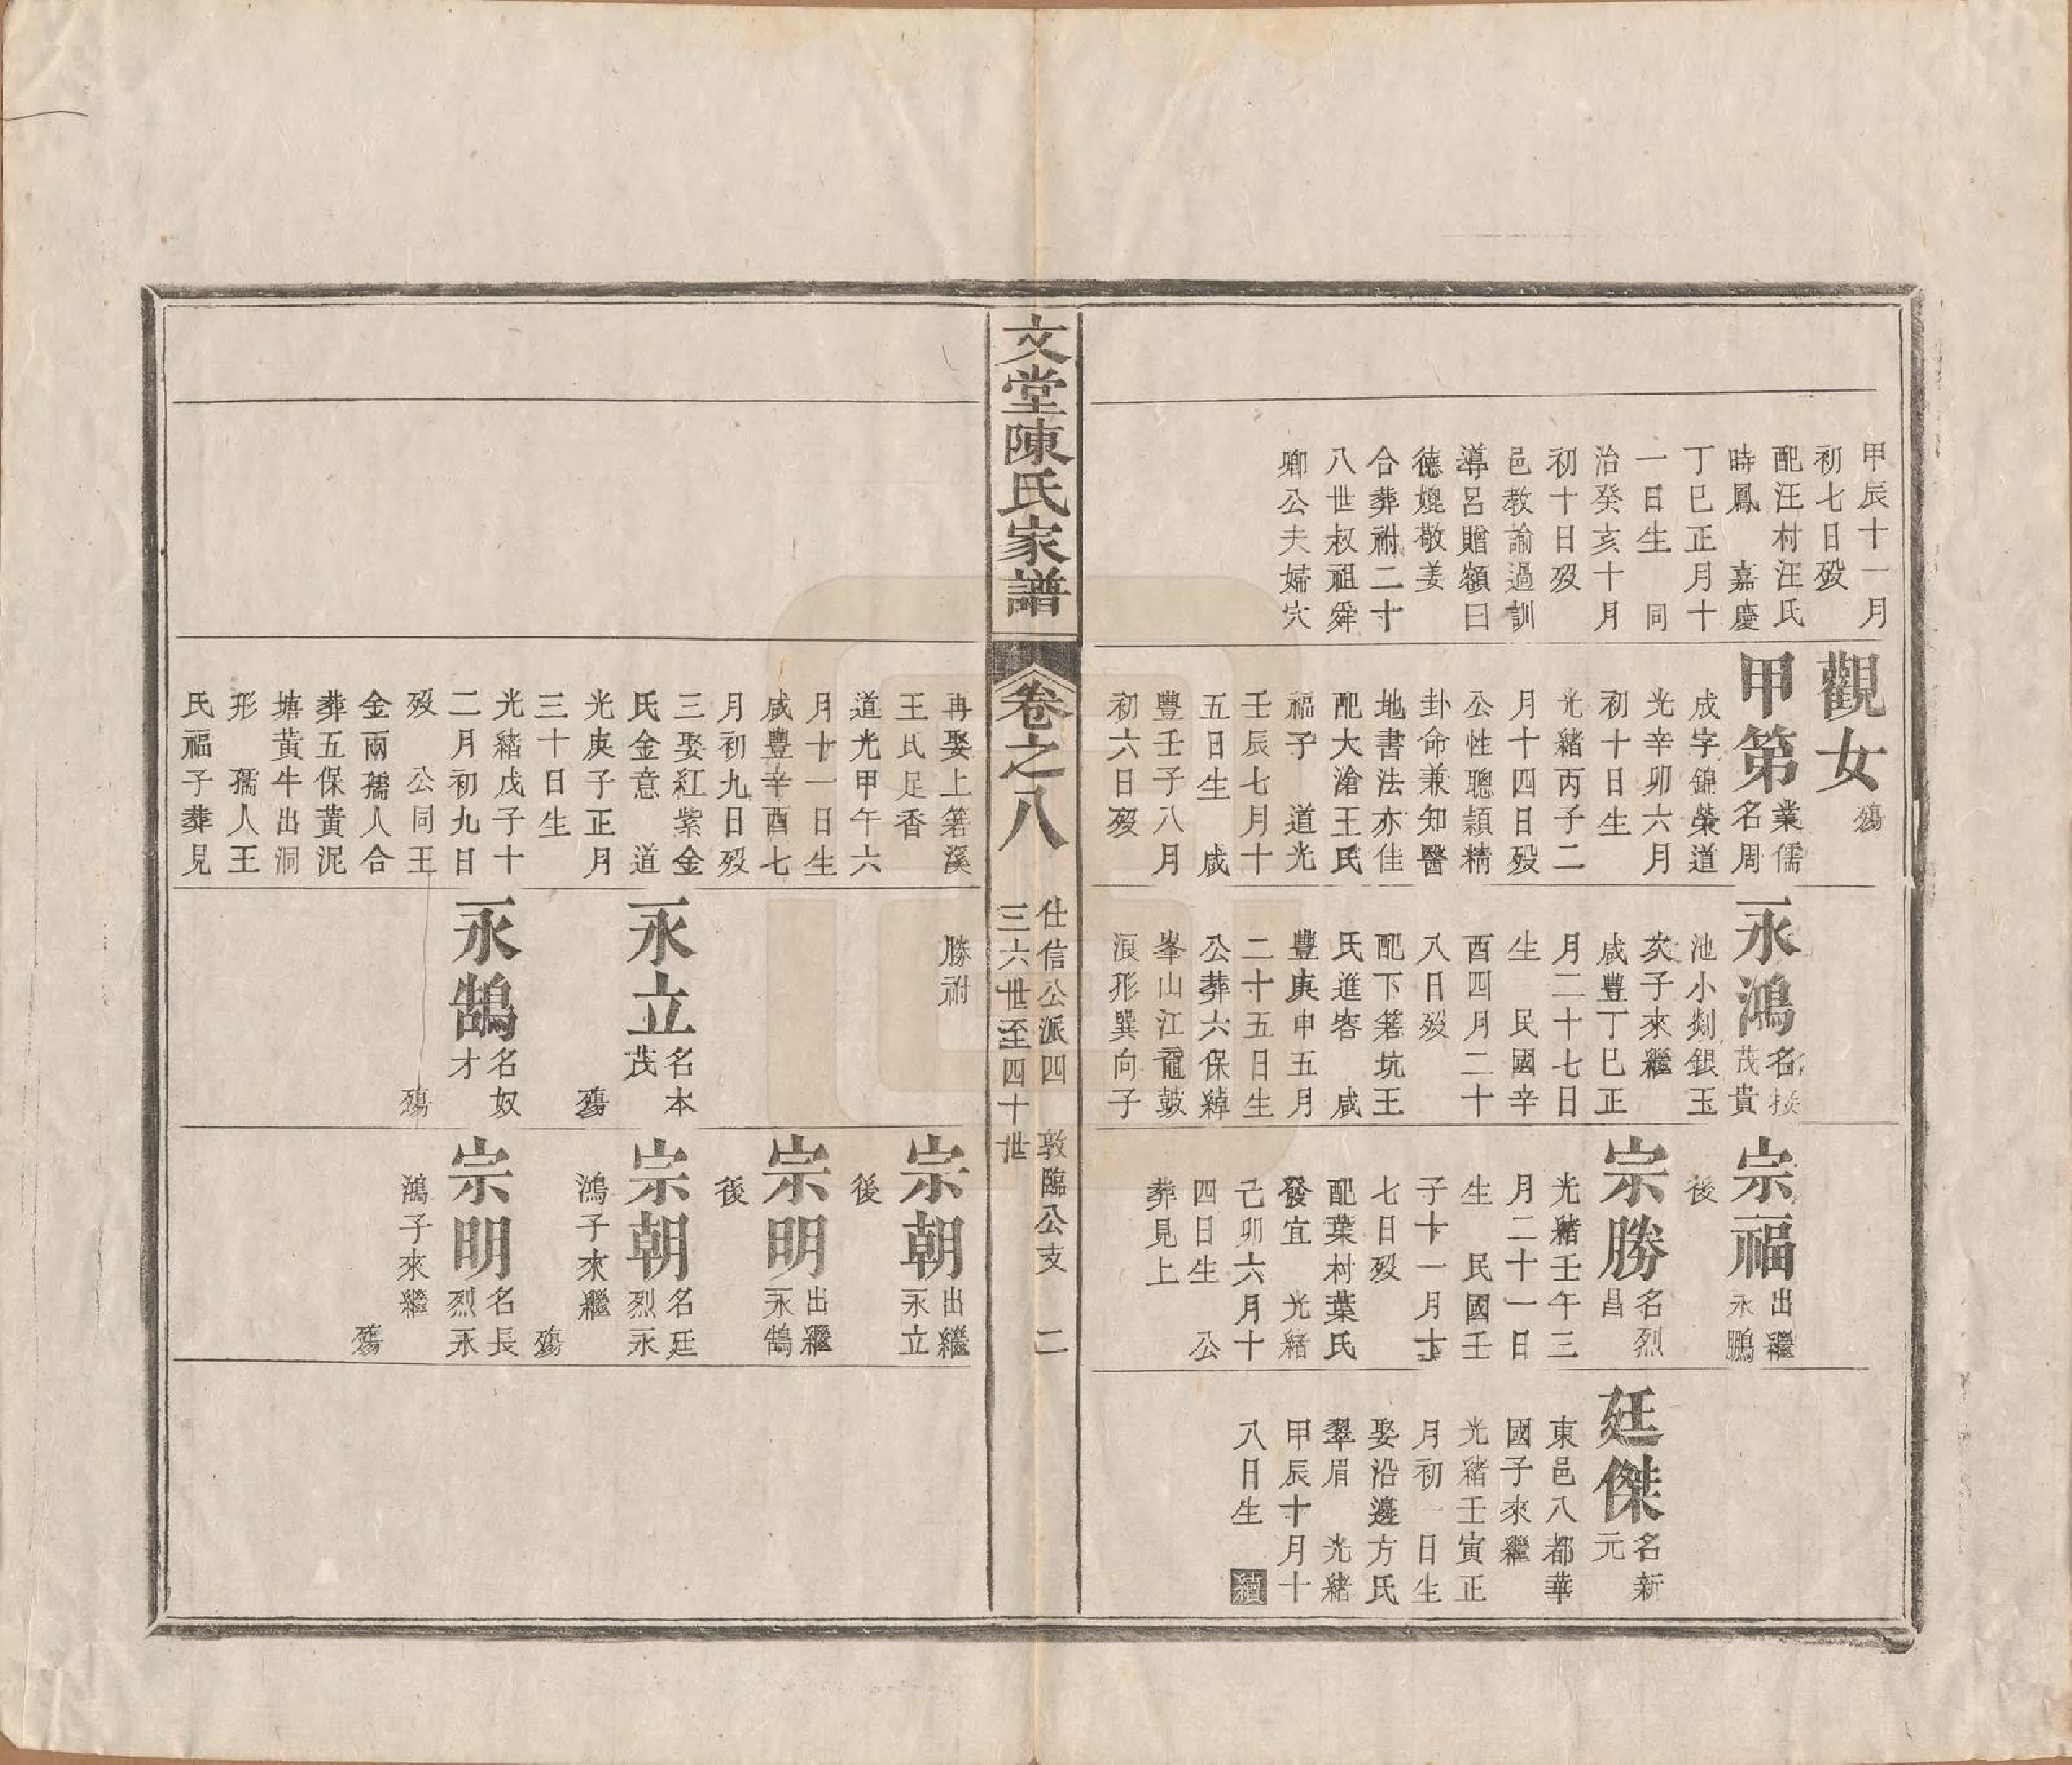 甲辰十一月
初七日歿
配汪村汪氏
時鳳　嘉慶
丁巳正月十
一日生　同
治癸亥十月
初十日歿
邑教諭過訓
導呂贈額曰
德媲敬姜
合葬祔二十
八世叔祖舜
卿公夫婦穴
觀女
殤
甲第
業儒
名周
成字錦榮道
光辛卯六月
初十日生
光緒丙子二
月十四日歿
公性聰頴精
卦命兼知醫
地書法亦佳
配大滄王氏
福子　道光
壬辰七月十
五日生　咸
豐壬子八月
初六日歿
永鴻
名
茂貴
池小剡銀玉
次子來繼
咸豐丁巳正
月二十七日
生　民國辛
酉四月二十
八日歿
配下箬坑王
氏進容　咸
豐庚申五月
二十五日生
公葬六保綽
峯山江龍皷
浪形巽向子
宗福
出繼
永鵬
後
宗勝
名烈
昌
光緒壬午三
月二十一日
生　民國壬
子十一月十
七日歿
配葉村葉氏
發宜　光緒
己卯六月十
四日生　公
葬見上
廷傑
名新
元
東邑八都華
國子來繼
光緒壬寅正
月初一日生
娶沿邊方氏
翠眉　光緒
甲辰十月十
八日生　續
文堂陳氏家譜
卷之八
仕信公派四　敦臨公支　二
三六世至四十世
再娶上箬溪
王氏足香
道光甲午六
月十一日生
咸豐辛酉七
月初九日歿
三娶紅紫金
氏金意　道
光庚子正月
三十日生
光緒戊子十
二月初九日
歿　公同王
金兩孺人合
葬五保黃泥
塘黃牛出洞
形　孺人王
氏福子葬見
勝祔
永立
名本
茂
殤
永鵠
名奴
才
殤
宗朝
出繼
永立
後
宗明
出繼
永鵠
後
宗朝
名廷
烈永
鴻子來繼
殤
宗明
名長
烈永
鴻子來繼
殤